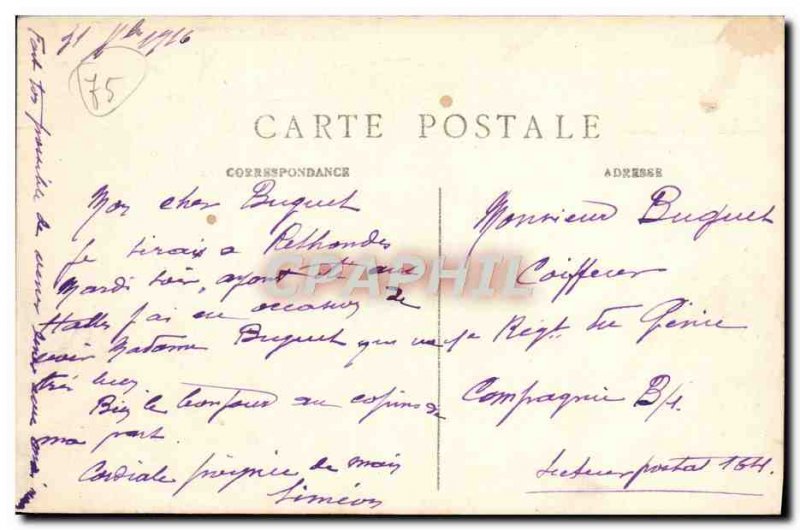 1916
75
CARTE POSTALE
CORRESPONDANCE
ADRESSE
Mon cher Buquet
Je serais a Rethondes
Mardi soir, ayant été aux
Halles j'ai eu occasion de
voir Madame Buquet qui va
très bien
Bien le bonjour au copins de
ma part
Cordiale poignée de main
Siméon
Fait ton possible de venir
Monsieur Buquet
Coiffeur
Régt du Génie
Compagnie B/1.
Secteur postal 164.
CPAPHIL